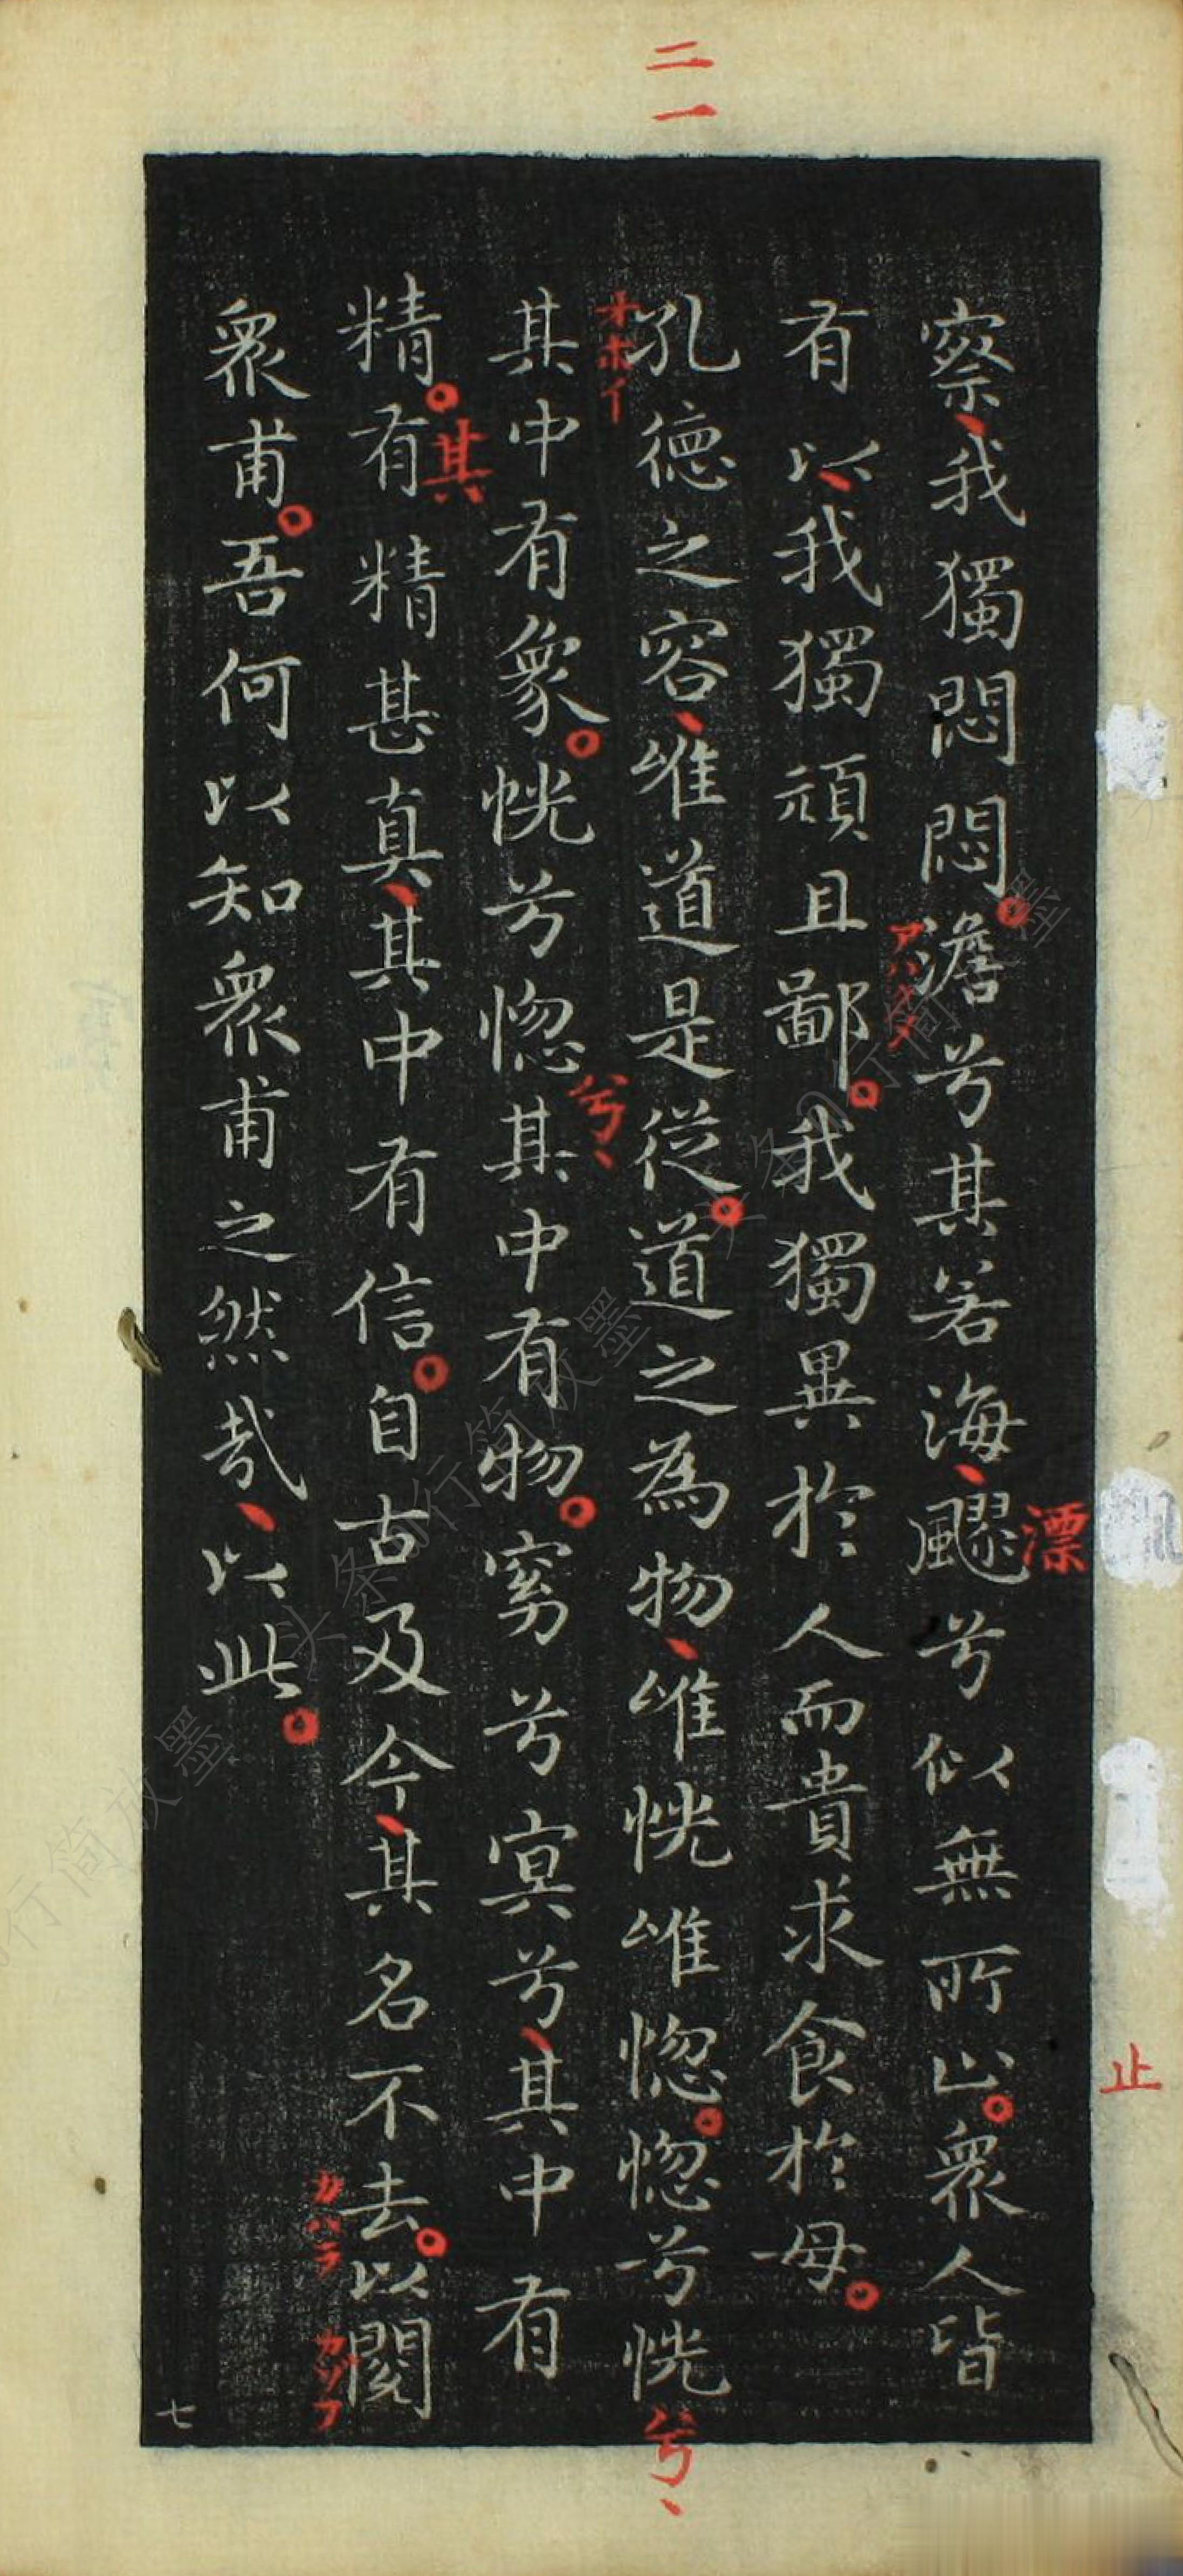 二一
察、我獨悶悶。澹兮其若海、飂兮似無所止。衆人皆
漂
止
アハク
有以、我獨頑且鄙。我獨異於人而貴求食於母。
孔德之容、唯道是從。道之為物、唯恍唯惚。惚兮恍
兮、
オホイ
其中有象。恍兮惚其中有物。窈兮冥兮、其中有
兮、
精。有精甚真、其中有信。自古及今、其名不去。以閱
其
カハラ
カゾフ
衆甫。吾何以知衆甫之然哉、以此。
七
头条@行简放墨
头条@行简放墨
行简放墨